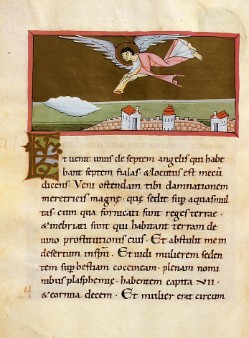 Et venit unus de septem angelis qui habe
bant septem fialas & locutus est mecū
dicens. Veni ostendam tibi damnationem
meretricis magnę. que sedit sup aquas mul
tas. cum qua fornicati sunt reges terrae.
& inebriati sunt qui habitant terram de
uino prostitutionis eius. Et abstulit me in
desertum in spū. Et uidi mulierem seden
tem sup bestiam coccineam. plenam nomi
nibus blasphemię. habentem capita VII.
& cornua decem. Et mulier erat circum